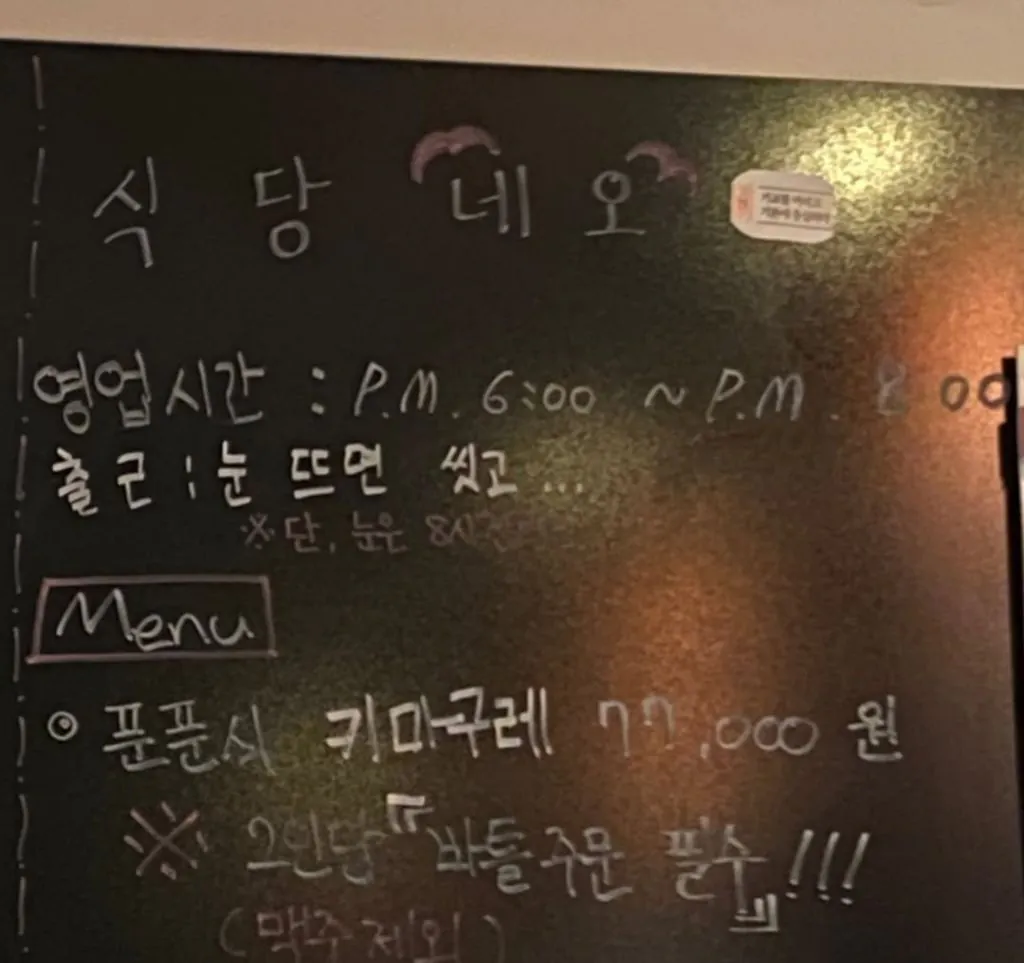 식당 네오
영업시간 : P.M. 6:00 ~ P.M. 8:00
출근 : 눈 뜨면 씻고...
※단, 눈은 8시
Menu
⊙ 푼푼식 키마구레 77,000 원
※ 2인당 『바틀주문 필수』!!!
(맥주제외)